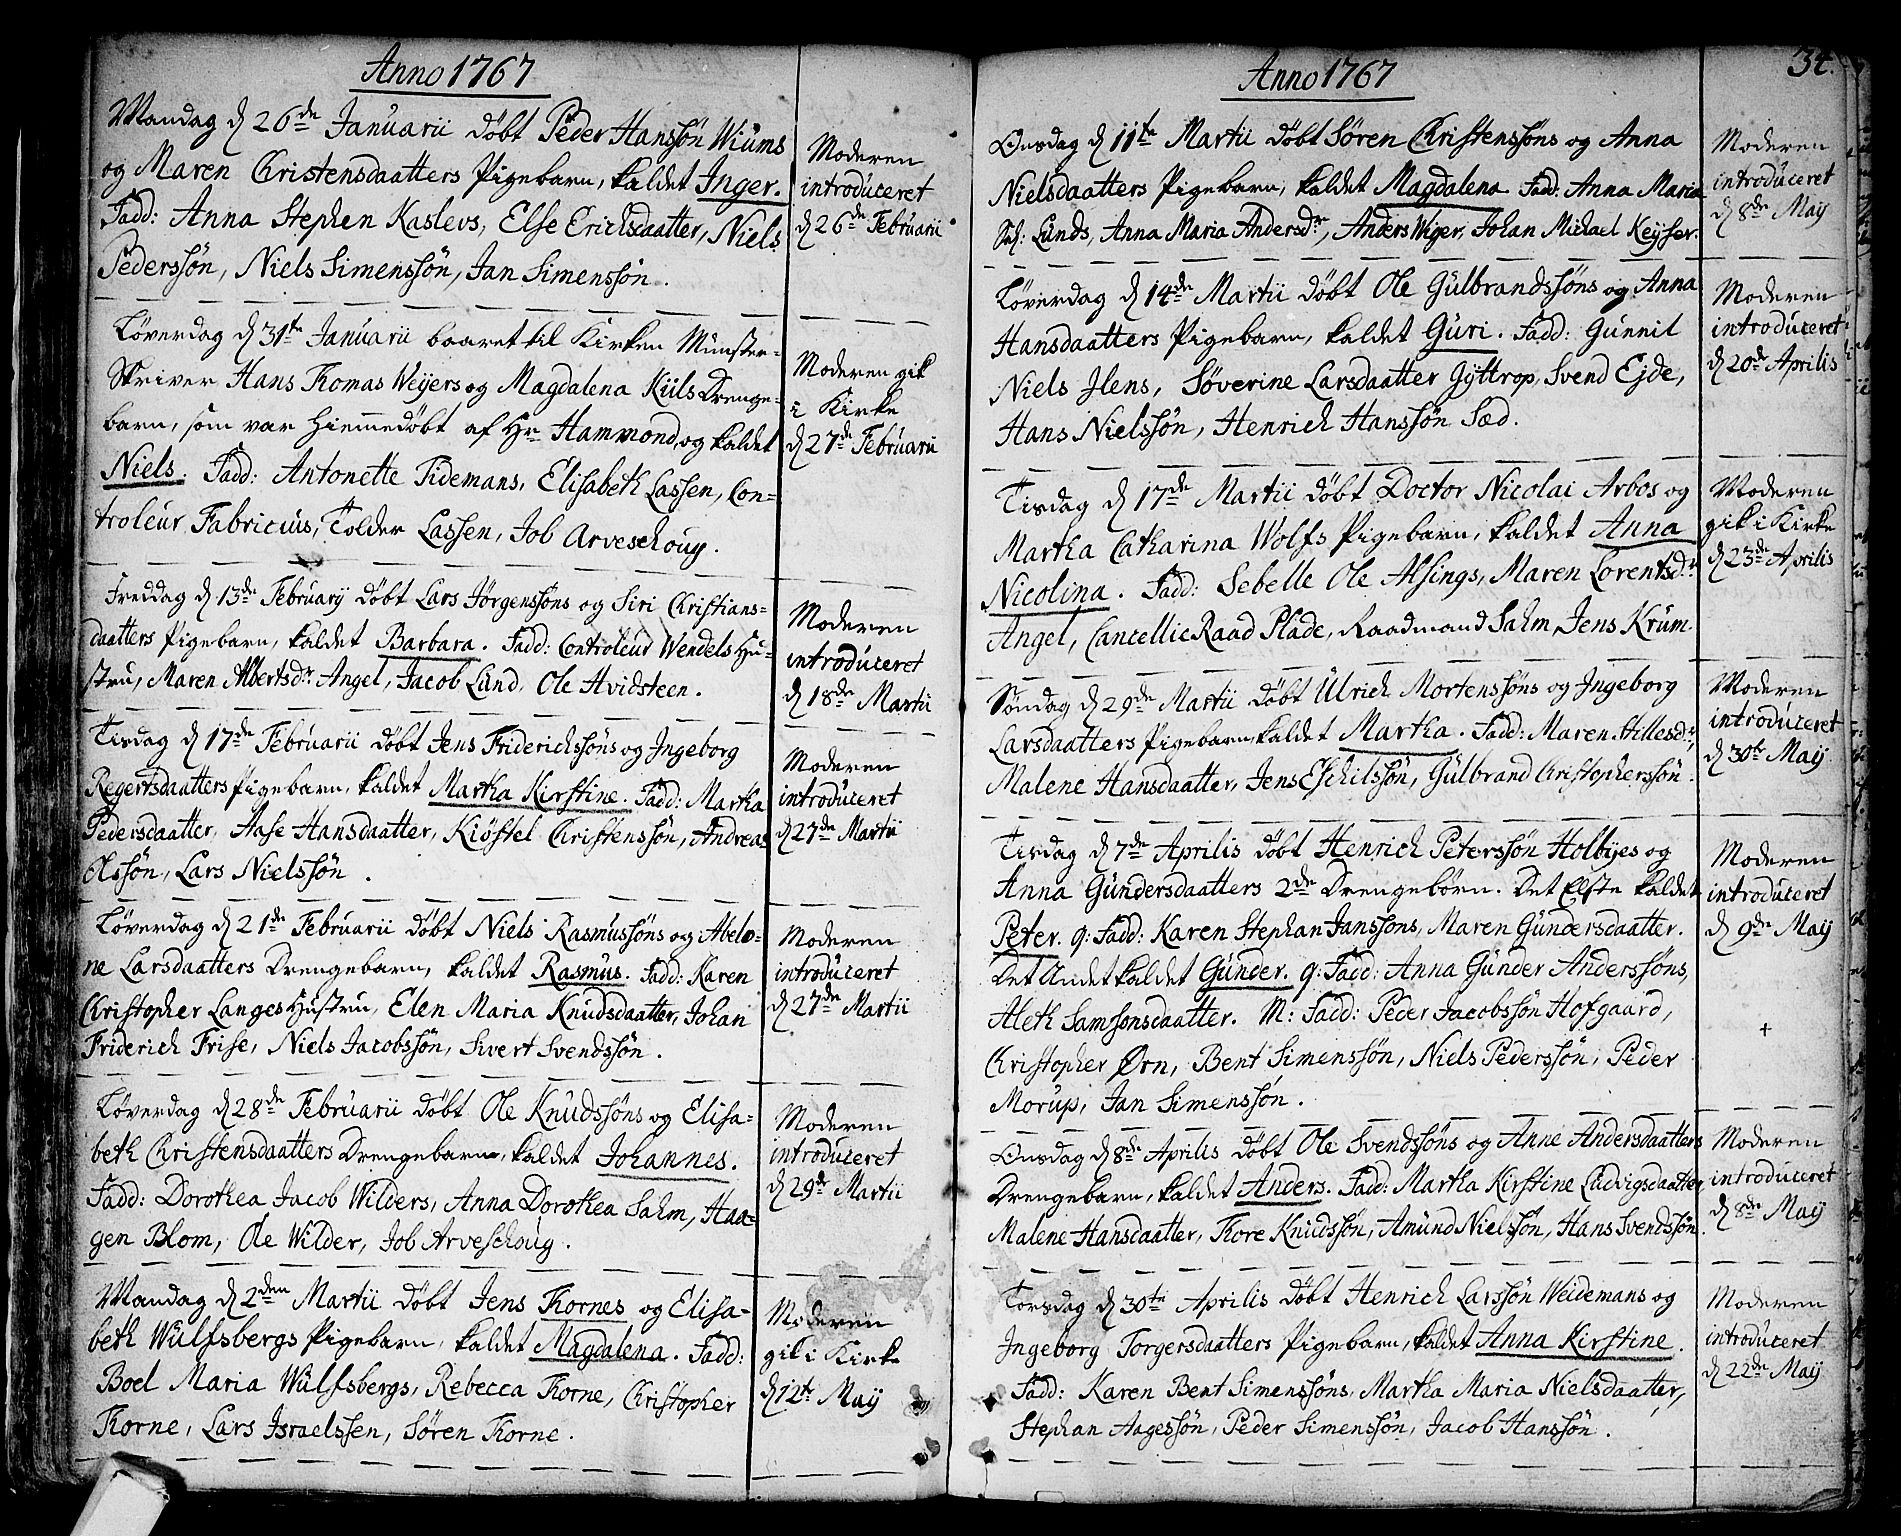 Anno 1767
Mandag d 26de Januarii døbt Peder Hanssøn Wiums
og Maren Christensdaatters Pigebarn, kaldet Inger.
Fadd: Anna Stephen Kaslevs, Else Erichsdaatter, Niels
Pederssøn, Niels Simenssøn, Jan Simenssøn.
Moderen
introduceret
d 26de Februarii
Løverdag d 31te Januarii baaret til Kirken Münster-
Skriver Hans Thomas Weyers og Magdalena Kiils Drenge-
barn, som var hiemmedøbt af Hr Hammond, og kaldet
Niels. Fadd: Antonette Tidemans, Elisabeth Lassen, Con-
troleur Fabricius, Tolder Lassen, Job Arveschoug.
Moderen gik
i Kirke
d 27de Februarii
Freddag d 13de Februarij døbt Lars Jörgenssøns og Siri Christians-
daatters Pigebarn, kaldet Barbara. Fadd: Controleur Wendels Hu-
stru, Maren Albertsdr Angel, Jacob Lund, Ole Hvidsteen.
Moderen
introduceret
d 18de Martii
Tirsdag d 17de Februarii døbt Jens Friderichssøns og Ingeborg
Regertsdaatters Pigebarn, kaldet Martha Kirstine. Fadd: Martha
Pedersdaatter, Aase Hansdaatter, Kiöstel Christenssøn, Andreas
Olssøn, Lars Nielssøn.
Moderen
introduceret
d 27de Martii
Løverdag d 21de Februarii døbt Niels Rasmussøns og Abelo-
ne Larsdaatters Drengebarn, kaldet Rasmus. Fadd: Karen
Christopher Langes Hustru, Elen Maria Knudsdaatter, Johan
Friderich Frise, Niels Jacobssøn, Sivert Svendssøn.
Moderen
introduceret
d 27de Martii
Løverdag d 28de Februarii døbt Ole Knudssøns og Elisa-
beth Christensdaatters Drengebarn, kaldet Johannes.
Fadd: Dorothea Jacob Wilders, Anna Dorothea Sahm, Haa-
gen Blom, Ole Wilder, Job Arveschoug.
Moderen
introduceret
d 29de Martii
Mandag d 2den Martii døbt Jens Thornes og Elisa-
beth Wulfsbergs Pigebarn, kaldet Magdalena. Fadd:
Boel Maria Wulfsbergs, Rebecca Thorne, Christopher
Thorne, Lars Israelssen, Søren Thorne.
Moderen
gik i Kirke
d 12te Maij
Anno 1767
34.
Onsdag d 11te Martii døbt Søren Christenssøns og Anna
Nielsdaatters Pigebarn, kaldet Magdalena. Fadd: Anna Maria
Sal: Lunds, Anna Maria Andersdr, Anders Wiger, Johan Michael Keyser.
Moderen
introduceret
d 8de Maij
Løverdag d 14de Martii døbt Ole Gulbrandssøns og Anna
Hansdaatters Pigebarn, kaldet Guri. Fadd: Gunnil
Niels Ilens, Søverine Larsdaatter Gyttrop, Svend Ejde,
Hans Nielssøn, Henrich Hanssøn Sæd.
Moderen
introduceret
d 20de Aprilis
Tirsdag d 17de Martii døbt Doctor Nicolai Arbos og
Martha Catharina Wolfs Pigebarn, kaldet Anna
Nicolina. Fadd: Sebelle Ole Alsings, Maren Lorentsdr
Angel, CancellieRaad Plade, Raadmand Sahm, Jens Krum.
Moderen
gik i Kirke
d 23de Aprilis
Søndag d 29de Martii døbt Ulrich Mortenssøns og Ingeborg
Larsdaatters Pigebarn, kaldet Martha. Fadd: Maren Hillesdr,
Malene Hansdaatter, Jens Eschilssøn, Gulbrand Christopherssøn.
Moderen
introduceret
d 30te Maij
Tirsdag d 7de Aprilis døbt Henrich Peterssøn Holbyes og
Anna Gundersdaatters 2de Drengebørn. Det Elste kaldet
Peter. q: Fadd: Karen Stephan Janssøns, Maren Gundersdaatter.
Det Andet kaldet Gunder. q: Fadd: Anna Gunder Anderssøns,
Aleth Samsonsdaatter. M: Fadd: Peder Jacobssøn Hofgaard,
Christopher Ørn, Bent Simenssøn, Niels Pederssøn, Peder
Morup, Jan Simenssøn.
Moderen
introduceret
d 9de Maij
+
Onsdag d 8de Aprilis døbt Ole Svendssøns og Anne Andersdaatters
Drengebarn, kaldet Anders. Fadd: Martha Kirstine Ludvigsdaatter,
Malene Hansdaatter, Thore Knudssøn, Amund Nielssøn, Hans Svendssøn.
Moderen
introduceret
d 8de Maij
Torsdag d 30te Aprilis døbt Henrich Larssøn Weidemans og
Ingeborg Torgersdaatters Pigebarn, kaldet Anna Kirstine.
Fadd: Karen Bent Simenssøns, Martha Maria Nielsdaatter,
Stephan Aagessøn, Peder Simenssøn, Jacob Hanssøn.
Moderen
introduceret
d 22de Maij